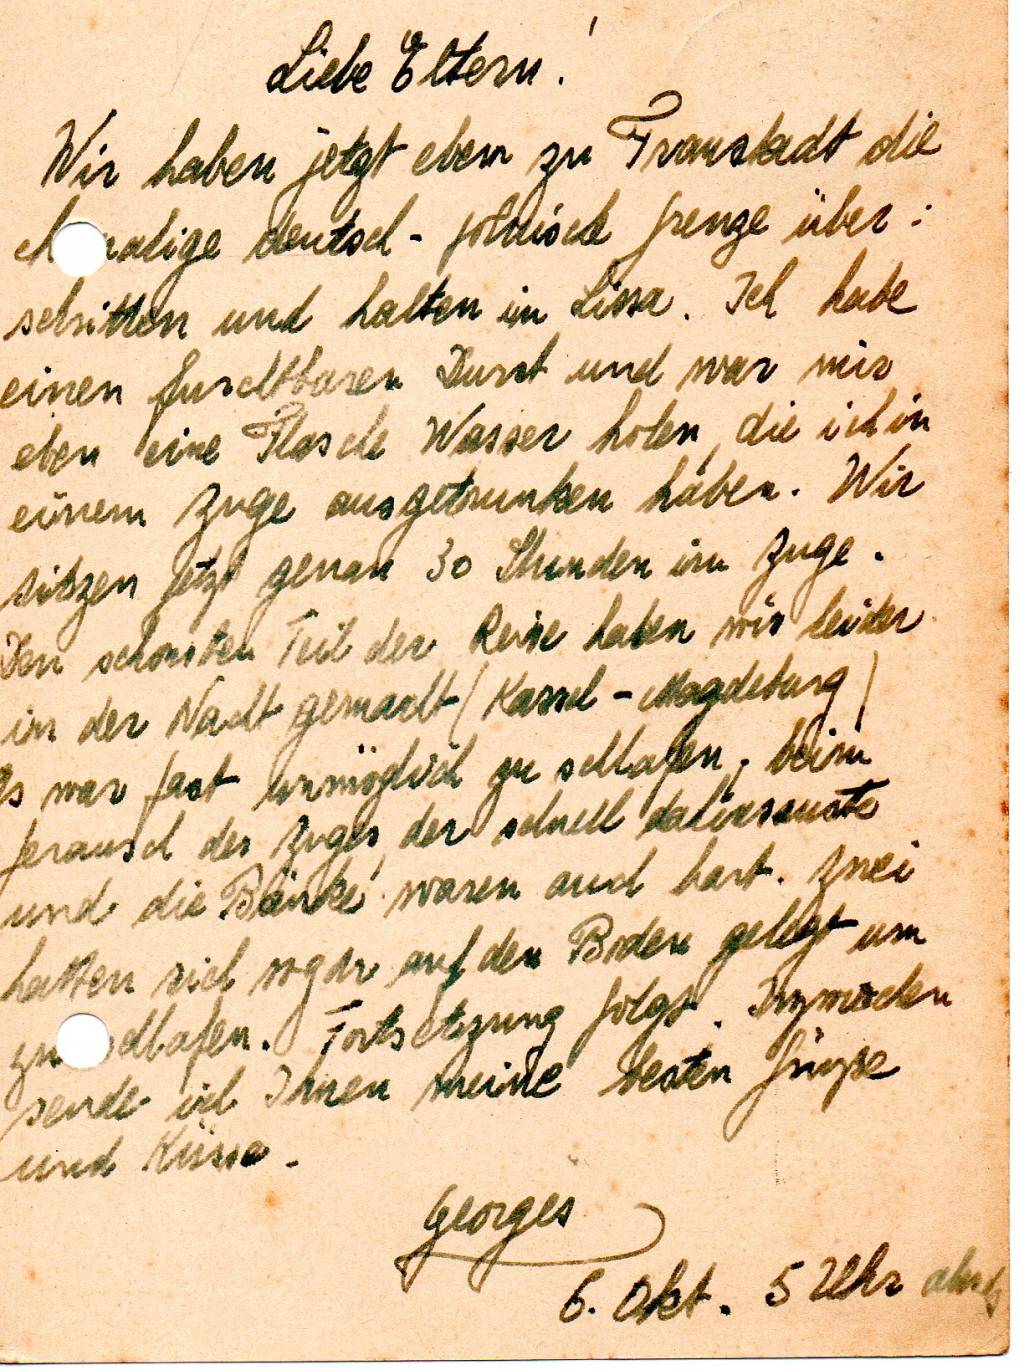 Liebe Eltern!
Wir haben jetzt eben zu Fraustadt die
ehmalige deutsch-polnisch Grenze über:
schritten und halten in Lissa. Ich habe
einen furchtbaren Durst und war mir
eben eine Flasche Wasser holen, die ich in
einem Zuge ausgetrunken haben. Wir
sitzen jetzt genau 30 Stunden im Zuge.
Den schönsten Teil der Reise haben wir leider
in der Nacht gemacht (Kassel - Magdeburg)
Es war fast unmöglich zu schlafen, beim
Gerausch des Zuges, der schnell dahinsauste
und die Bänke waren auch hart. Zwei
hatten sich sogar auf den Boden gelegt um
zu schlafen. Fortsetzung folgt. Inzwischen
sende ich Ihnen meine besten Grüsse
und Küsse.
Georges
6. Okt. 5 Uhr abends